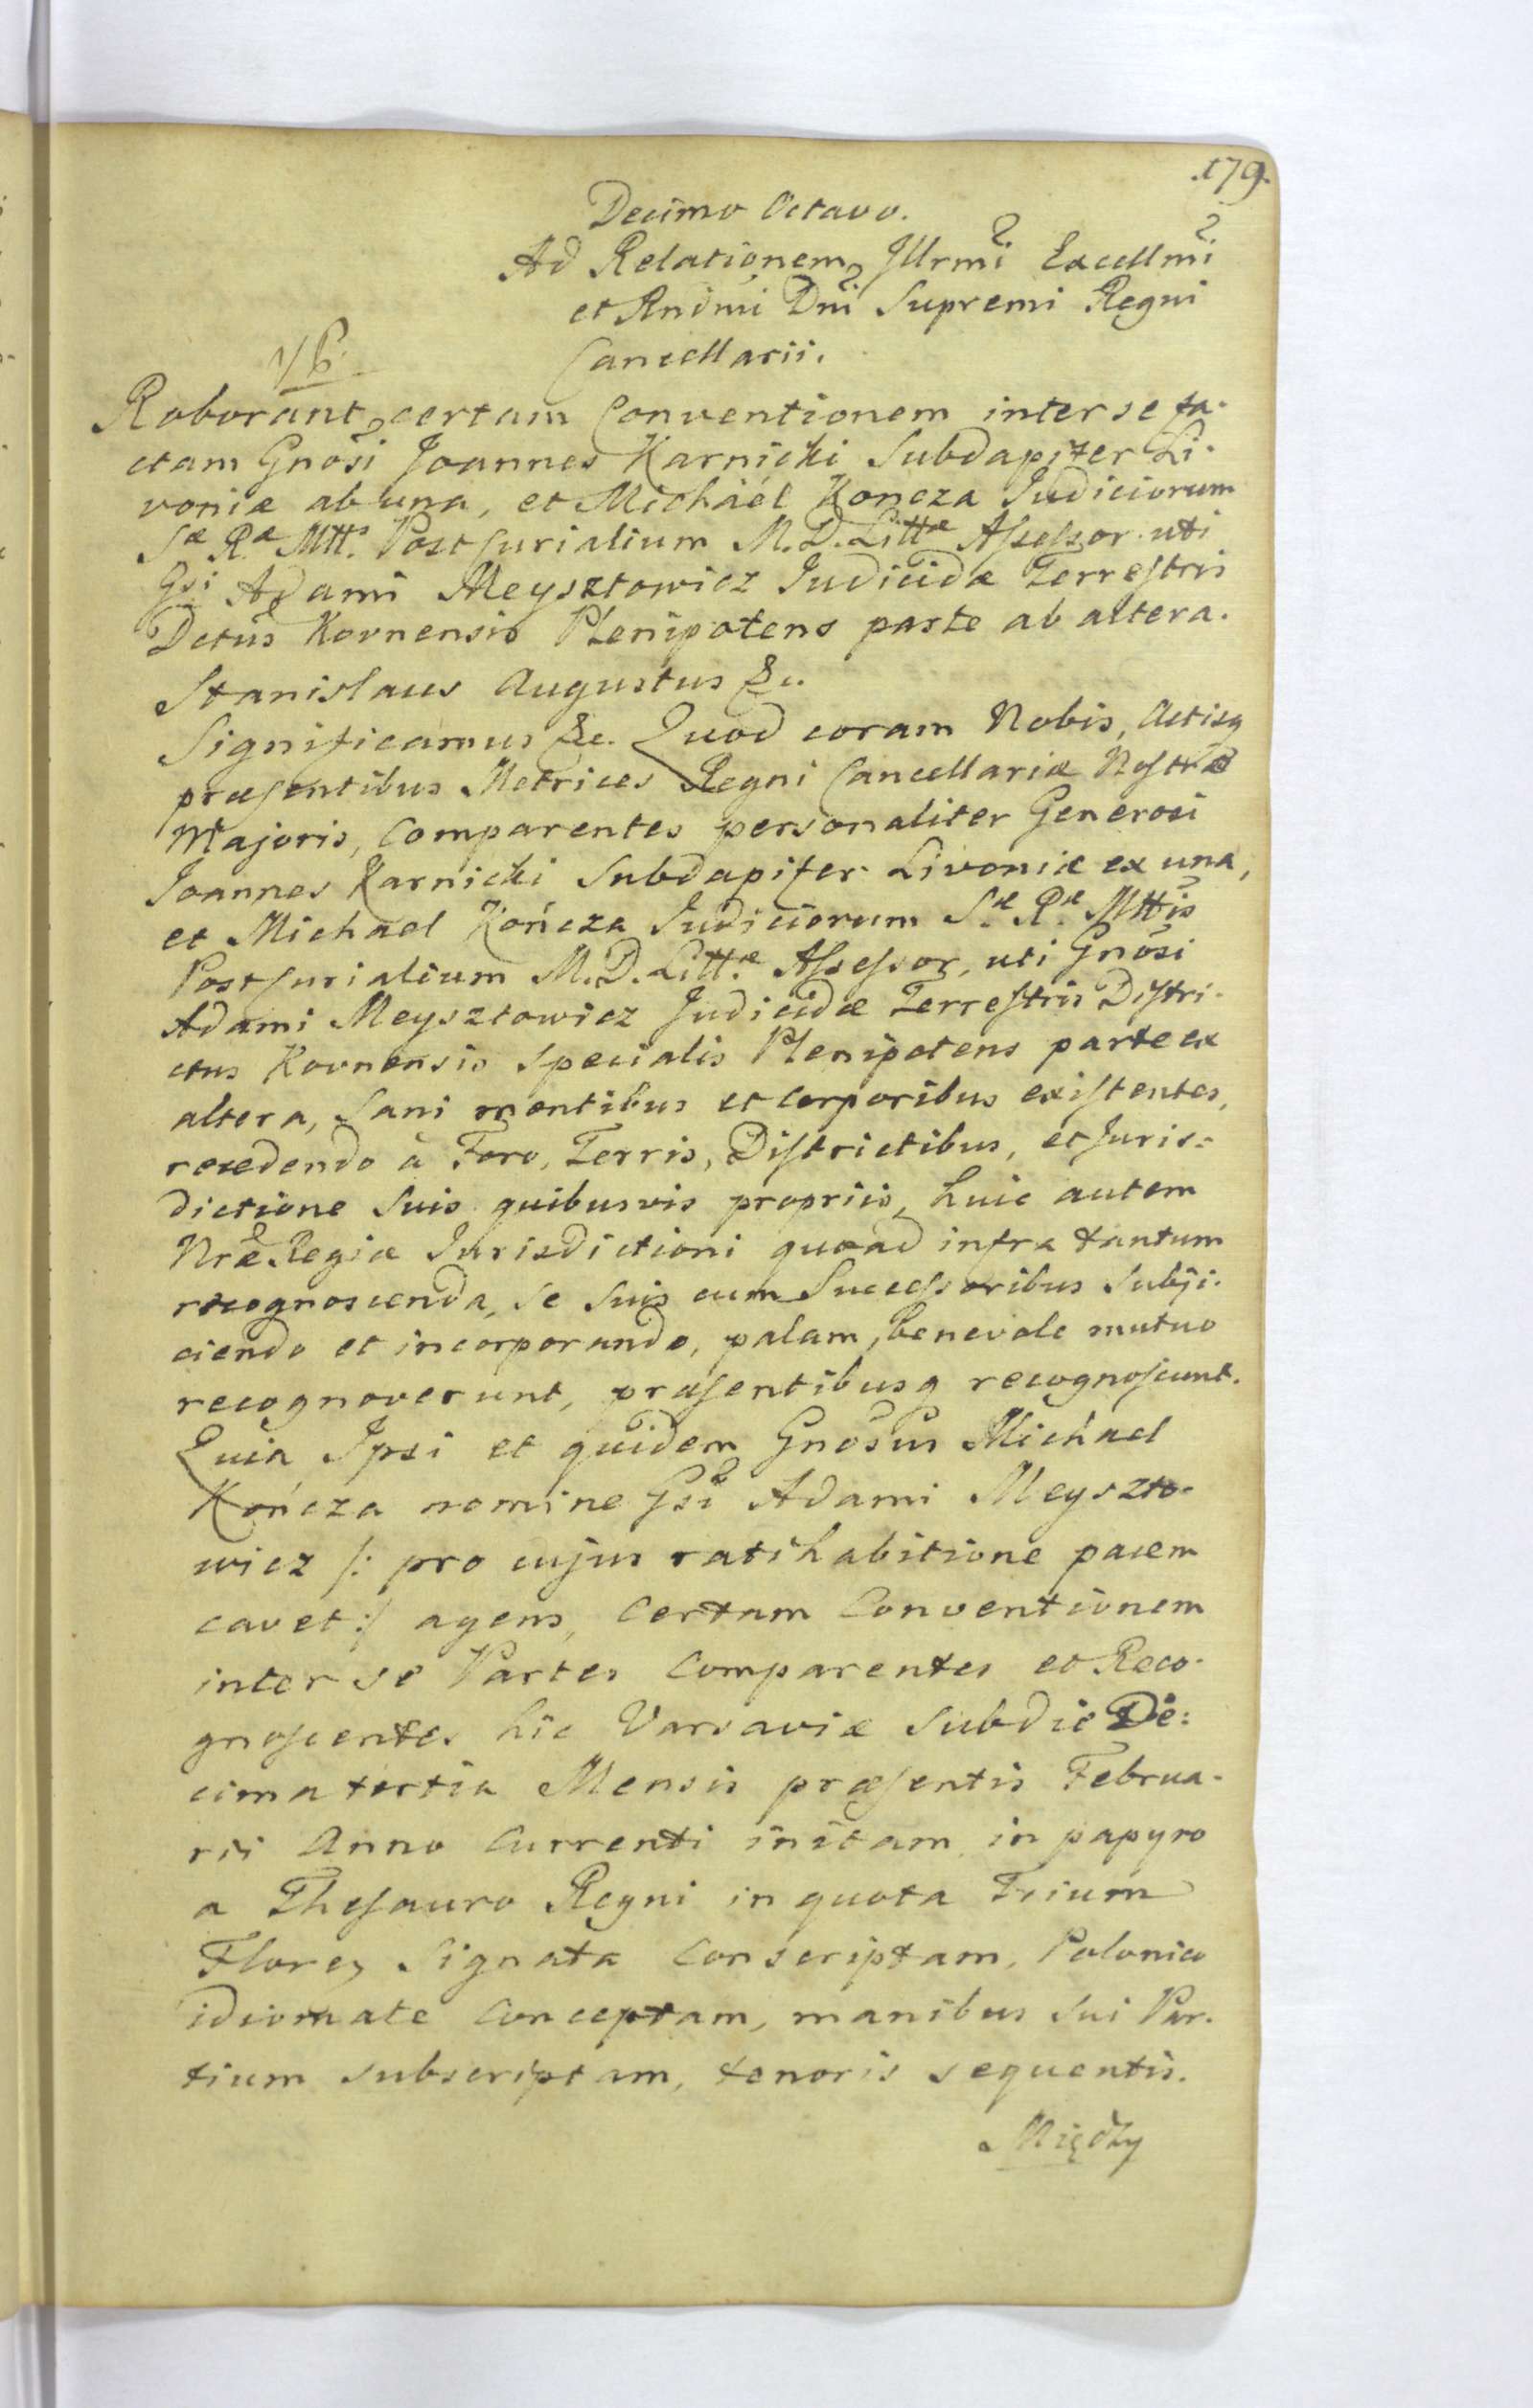 .179.
Decimo Octavo.
Ad Relationem Illrmi Excellmi
et Rndmi Dni Supremi Regni
Cancellarii.
Roborant certam Conventionem inter se fa-
ctam Gnosi Joannes Karnicki Subdapifer Li-
voniæ ab una, et Michaël Koncza Judiciorum
Sæ Ræ Mttis Post Curialium M. D. Littæ Assessor uti
Gsi Adami Meysztowicz Judicidæ Terrestris
Dctus Kovnensis Plenipotens parte ab altera.
Stanislaus Augustus &c.
Significamus &c. Quod coram Nobis, Actisq
præsentibus Metrices Regni Cancellariæ Nostræ
Majoris, Comparentes personaliter Generosi
Joannes Karnicki Subdapifer Livoniæ ex una,
et Michael Kończa Judiciorum Sæ Ræ Mttis
Post Curialium M. D. Littæ Assessor, uti Gnosi
Adami Meysztowicz Judicidæ Terrestris Distri-
ctus Kovnensis Specialis Plenipotens parte ex
altera, Sani mentibus et Corporibus existentes,
recedendo à Foro, Terris, Districtibus, et Juris=
dictione Suis quibusvis propriis, huic autem
Nræ Regiæ Jurisdictioni quoad infra tantum
recognoscenda, se suis cum Successoribus Subji-
ciendo et incorporando, palam, benevole mutuo
recognoverunt, præsentibusq recognoscunt.
Quia Ipsi et quidem Gnosus Michael
Kończa nomine Gsi Adami Meyszto-
wicz /: pro cujus ratihabitione pacem
cavet :/ agens, Certam Conventionem
inter se Partes Comparentes et Reco-
gnoscentes hic Varsaviæ Sub die De=
cima tertia Mensis præsentis Februa-
rii Anno Currenti initam, in papyro
a Thesauro Regni in quota Trium
Floren Signata Conscriptam, Polonico
idiomate Conceptam, manibus Sui Par-
tium subscriptam, tenoris sequentis.
Między